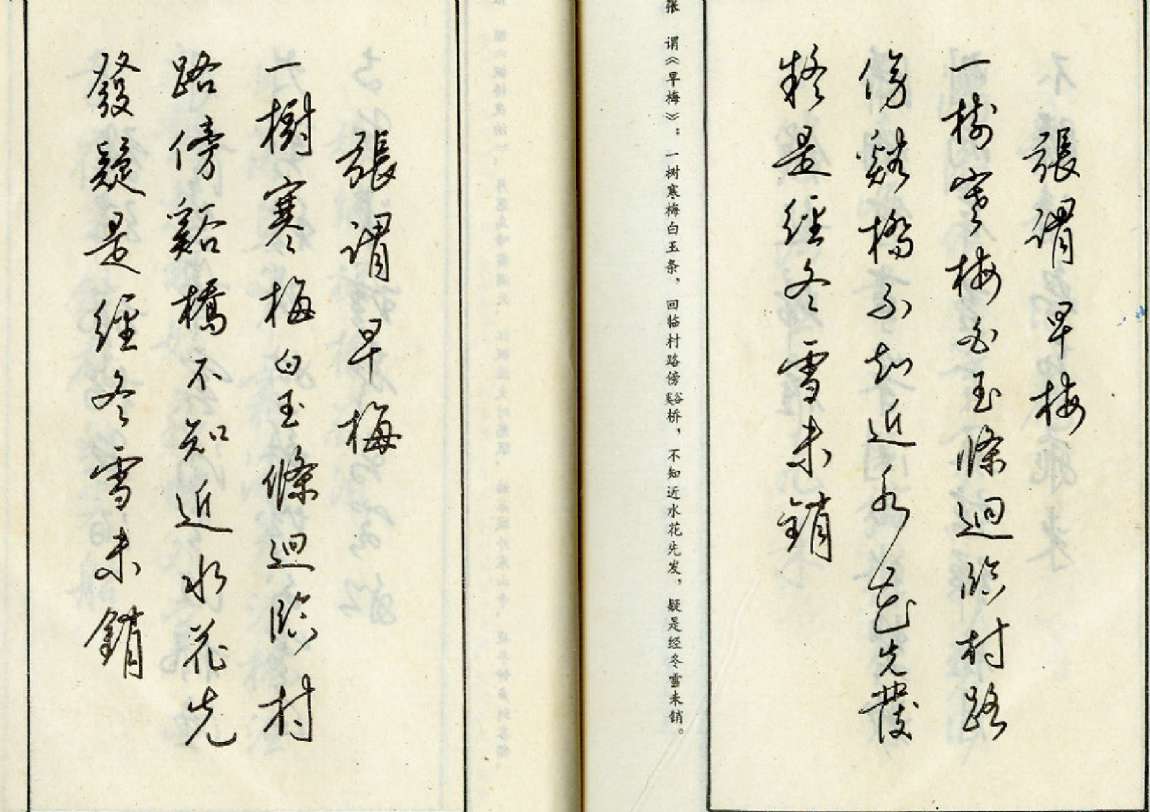 張謂 早梅
一樹寒梅白玉條迴臨村路
傍谿橋不知近水花先發
疑是經冬雪未銷
张 谓《早梅》：一树寒梅白玉条，回临村路傍谿桥，不知近水花先发，疑是经冬雪未销。
張謂 早梅
一樹寒梅白玉條迴臨村
路傍谿橋不知近水花先
發疑是經冬雪未銷